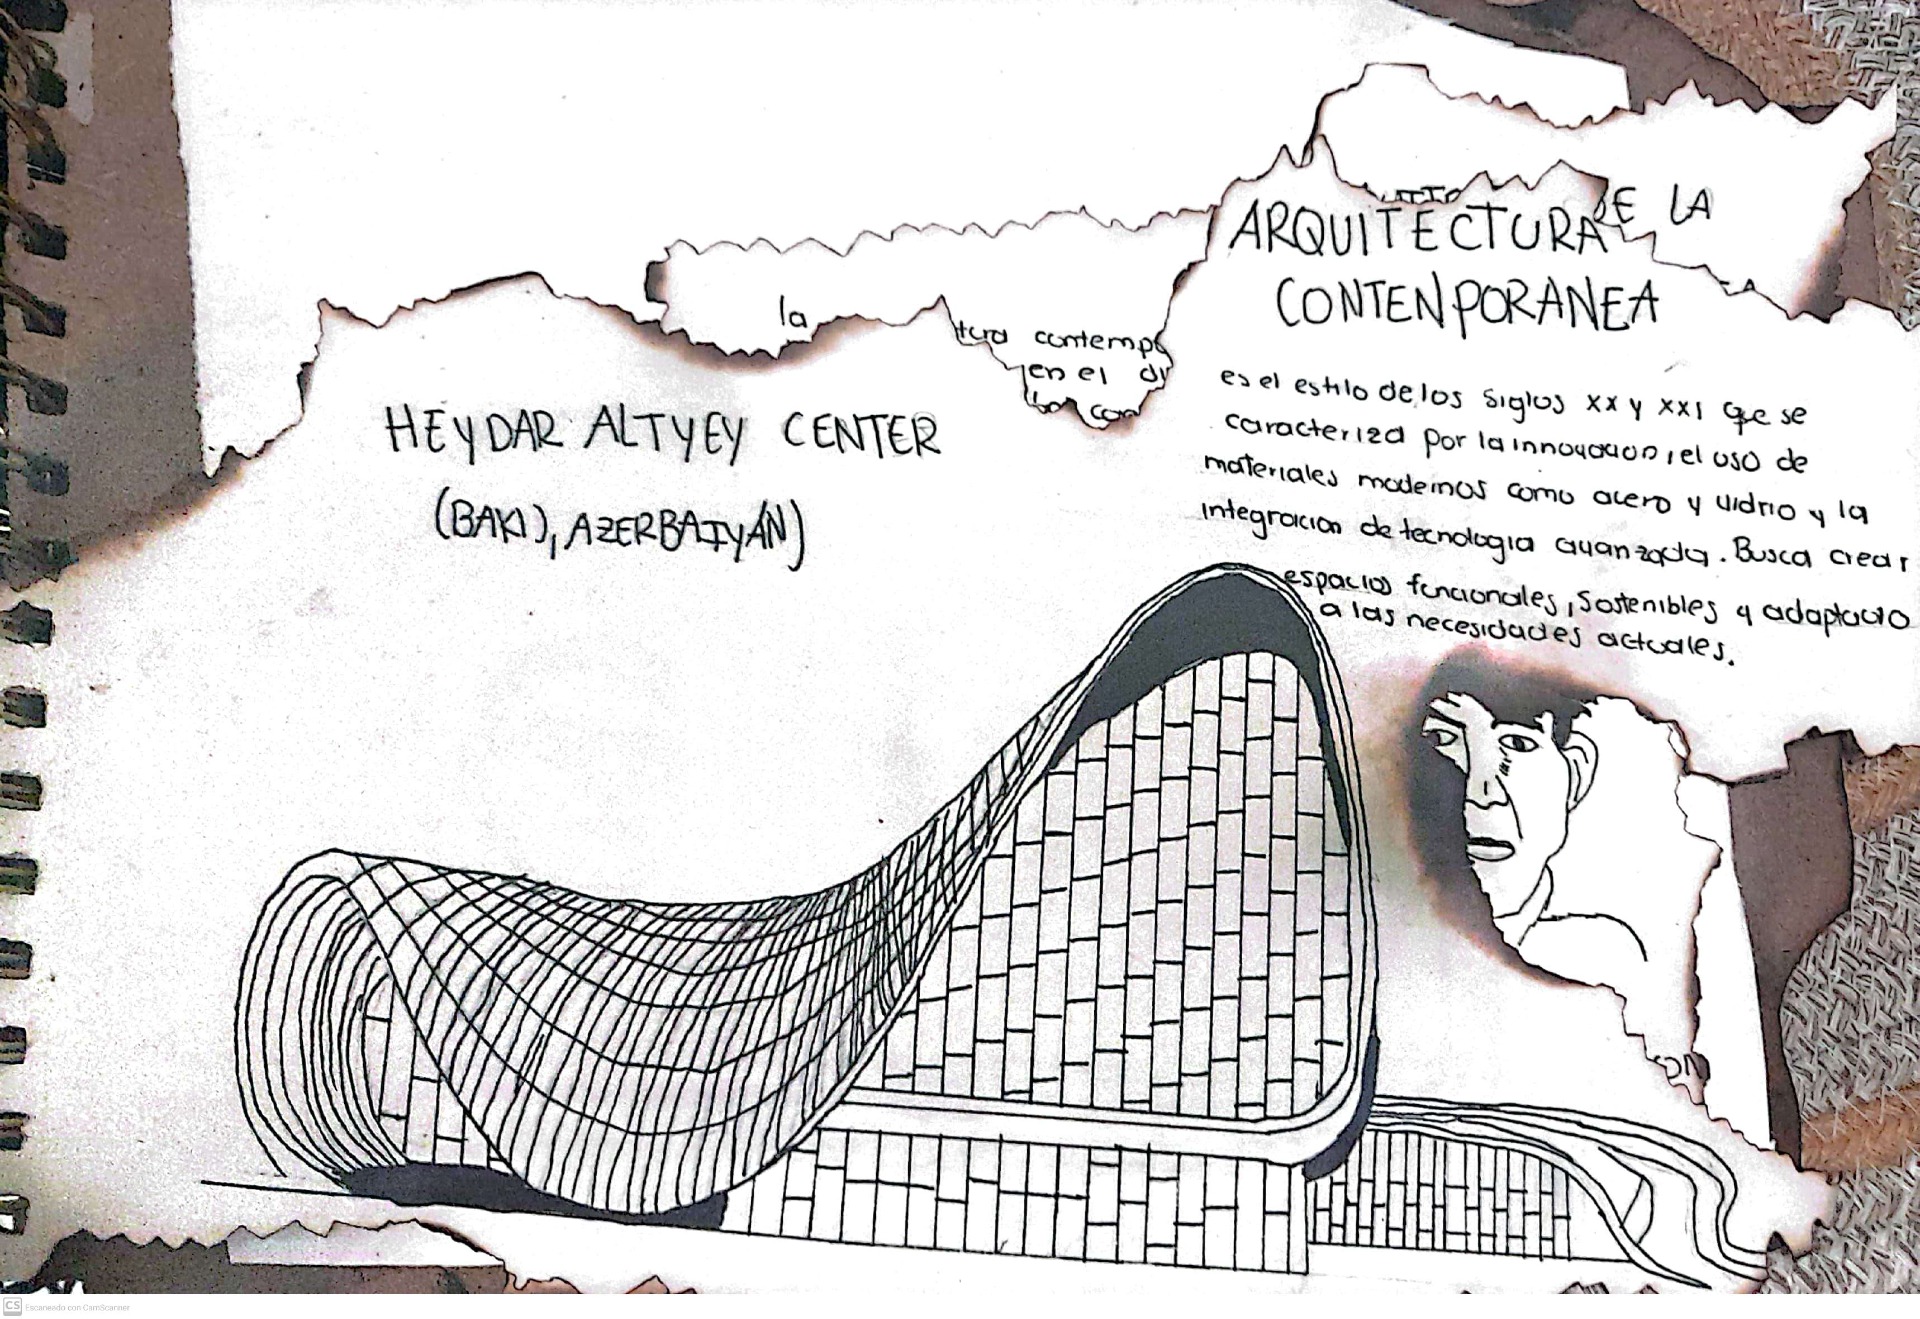 E LA
ARQUITECTURA
CONTENPORANEA
la
tura contempo
en el di
con
HEYDAR ALTYEY CENTER
(BAKI), AZERBAIYÁN)
es el estilo de los siglos xx y xxi que se
caracteriza por la innovacion, el uso de
materiales modernos como acero y vidrio y la
integracion de tecnologia avanzada. Busca crear
espacios funcionales, sostenibles y adaptado
a las necesidades actuales.
CS Escaneado con CamScanner